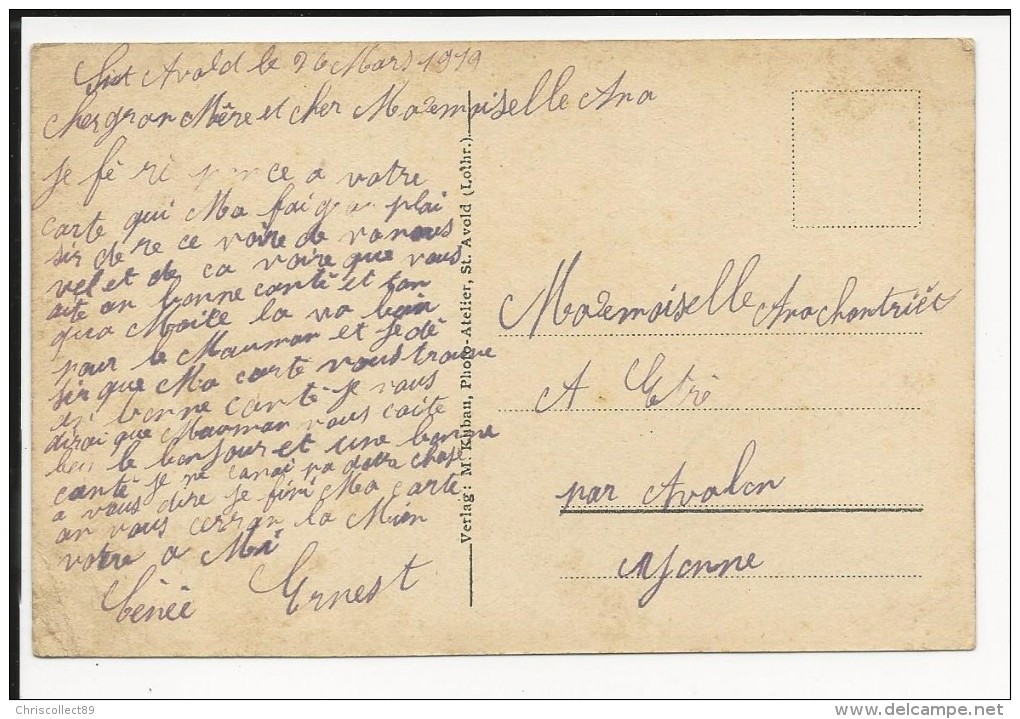 Sint Avold le 26 Mars 1919
cher gran Mère et cher Mademoiselle Ana
je fé ré pon ce a votre
carte qui Ma fai gran plai
sir de re ce voire de vo nous
vel et de ca voire que vous
aite an bonne canté et tan
qua Maite la va bain
pour le Mauman et je dé
sir que Ma carte vous trouve
en bonne canté je vous
dirai que Mauman vous coite
ben le bonjour et une bonne
canté je ne canai pa dotra chose
a vous dire je fini Ma carte
an vous cerran la Main
votre a Mi
Ernest
Mademoiselle Ana chontriét
A Etré
par Avalon
yonne
Verlag: M. Kuban, Photo-Atelier, St. Avold (Lothr.)
Chriscollect89
www.delcampe.net